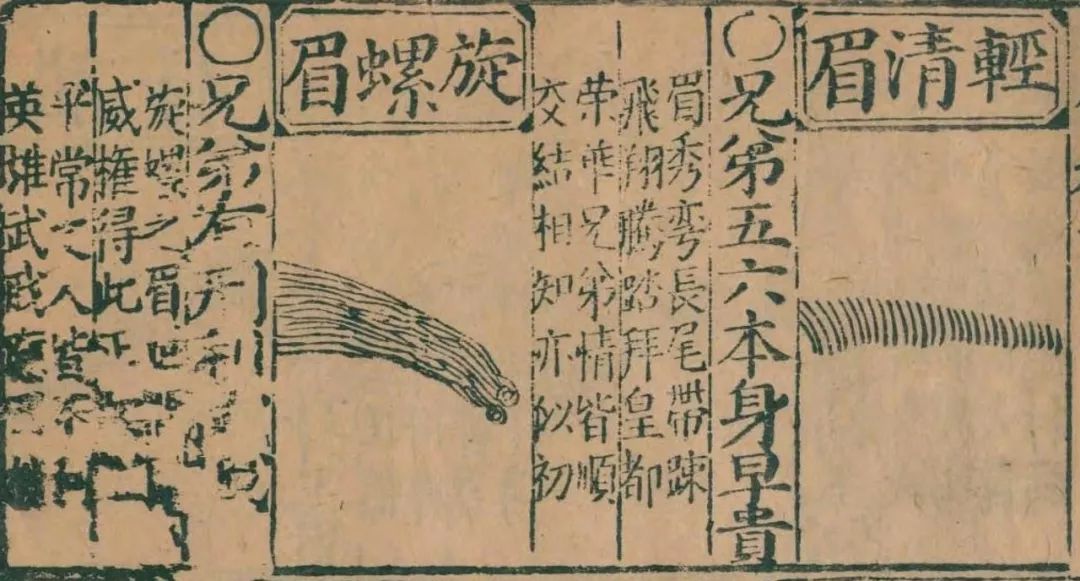 輕清眉
○兄弟五六本身早貴
眉秀弯長尾帶疎
飛翔騰踏拜皇都
荣華兄弟情皆順
交結相知亦似初
旋螺眉
○兄弟有
旋螺之眉世
威權得此正
平常之人皆不
英雄武